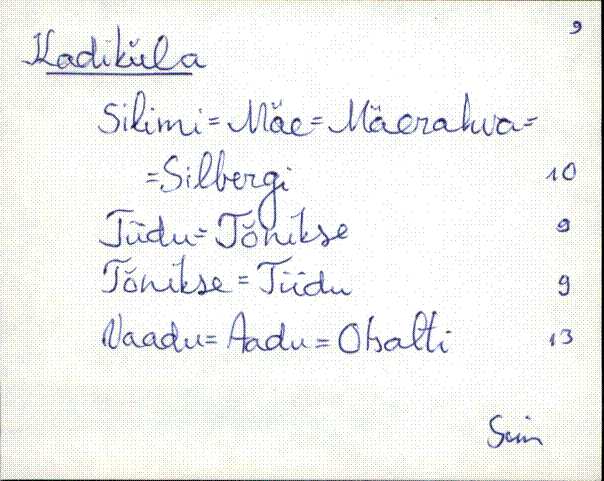 9
Kadiküla
Silimi = Mäe = Mäerahva =
= Silbergi 10
Tiidu = Tõnikse 9
Tõnikse = Tiidu 9
Vaadu = Aadu = Otsalti 13